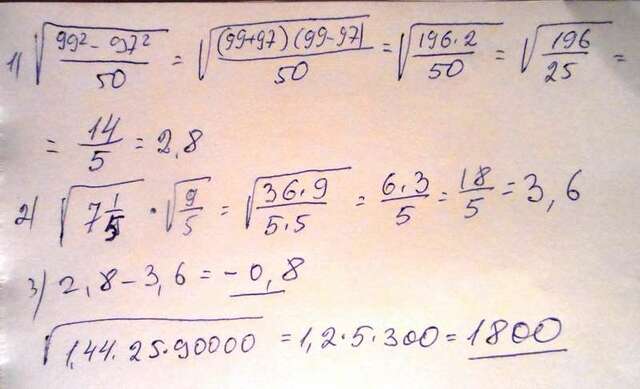 1) √((99² - 97²)/50) = √(((99+97)(99-97))/50) = √((196·2)/50) = √(196/25) =
= 14/5 = 2,8
2) √(7 1/5) · √(9/5) = √((36·9)/(5·5)) = (6·3)/5 = 18/5 = 3,6
3) 2,8 - 3,6 = -0,8
√(1,44·25·90000) = 1,2·5·300 = 1800